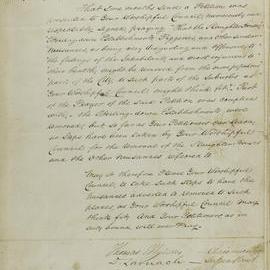 That some months since a Petition was
presented to Your Worshipful Council numerously and
respectably signed, praying that the Slaughter Houses,
Boiling down Establishments, Piggeries and other
Nuisances, as being very disgusting and offensive to
the feelings of the Inhabitants, and most injurious to
their health, might be removed from the more populous
parts of the City to such parts of the Suburbs as
Your Worshipful Council might think fit. Part
of the Prayer of the said Petition was complied
with, the Boiling down Establishments were
removed, but so far as Your Petitioners can learn,
no Steps have been taken by Your Worshipful
Council for the removal of the Slaughter Houses
and the other Nuisances referred to.
May it therefore Please Your Worshipful
Council to take such Steps to have the
Nuisances adverted to removed to such
places as Your Worshipful Council may
think fit. And Your Petitioners as in
duty bound will ever Pray.
Thomas